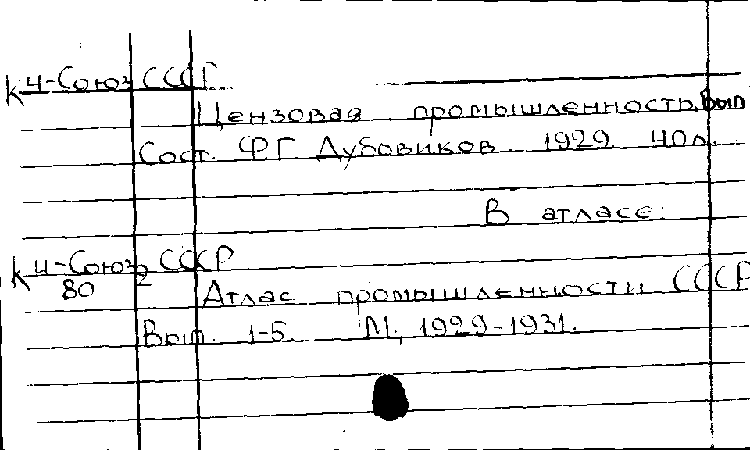 К Ч-Союз СССР
Цензовая промышленность. Вып
Сост. ФГ Дубовиков. 1929 40л.
В атласе:
К Ч-Союз СССР
80 2
Атлас промышленности СССР
Вып. 1-5. М, 1929-1931.